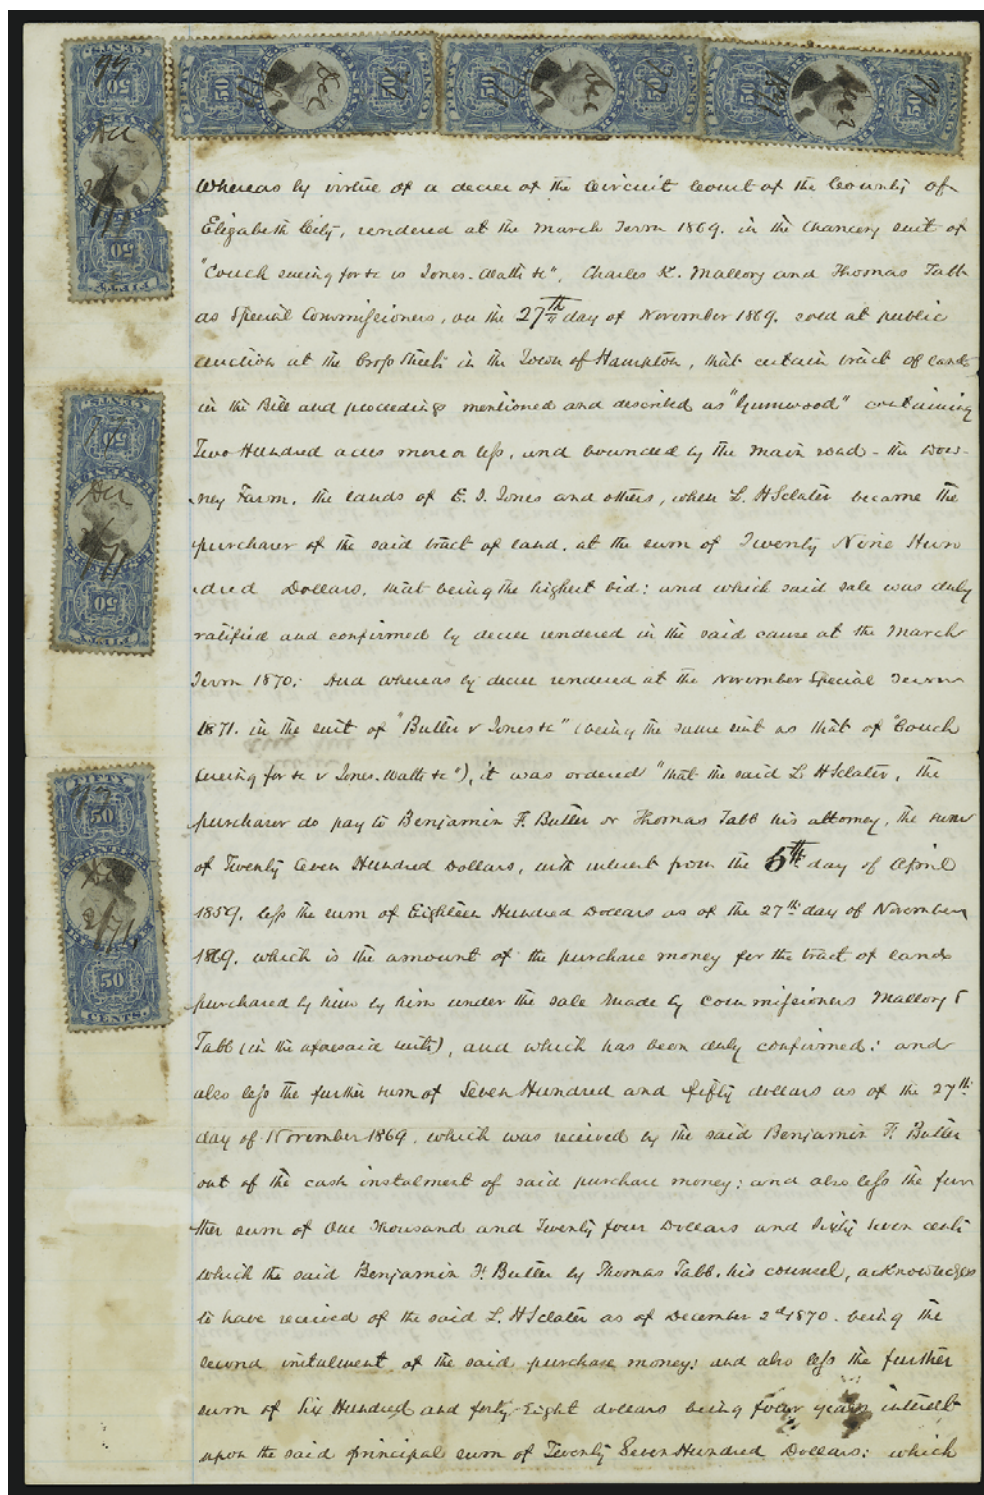 FIFTY 50 CENTS.
Whereas by virtue of a decree of the Circuit Court of the County of
Elizabeth City, rendered at the March Term 1869. in the Chancery suit of
"Couch sueing for &c vs Jones. Watts &c", Charles K. Mallory and Thomas Tabb
as Special Commissioners, on the 27th day of November 1869. sold at public
auction at the Cross Streets in the Town of Hampton, that certain tract of land
in the Bill and proceedings mentioned and described as "Gumwood" containing
Two Hundred acres more or less, and bounded by the main road - the Dow-
ney Farm. the lands of E. J. Jones and others, when L. H Sclater became the
purchaser of the said tract of land. at the sum of Twenty Nine Hun
dred Dollars, that being the highest bid: and which said sale was duly
ratified and confirmed by decree rendered in the said cause at the March
Term 1870: And whereas by decree rendered at the November Special Term
1871. in the suit of "Butler v Jones &c" (being the same suit as that of "Couch
sueing for &c v Jones. Watts &c"), it was ordered "that the said L H Sclater, the
purchaser do pay to Benjamin F. Butler or Thomas Tabb his attorney, the sum
of Twenty Seven Hundred Dollars, with interest from the 5th day of April
1859. less the sum of Eighteen Hundred Dollars as of the 27th day of November
1869. which is the amount of the purchase money for the tract of land
purchased by him by him under the sale made by commissioners Mallory &
Tabb (in the aforesaid suits), and which has been duly confirmed: and
also less the further sum of Seven Hundred and fifty dollars as of the 27th
day of November 1869. which was received by the said Benjamin F. Butler
out of the cash instalment of said purchase money: and also less the fur
ther sum of One Thousand and Twenty four Dollars and Sixty Seven cents
which the said Benjamin F. Butler by Thomas Tabb. his counsel, acknowledges
to have received of the said L. H Sclater as of December 2d 1870. being the
second instalment of the said purchase money: and also less the further
sum of Six Hundred and forty-Eight dollars being four years interest
upon the said principal sum of Twenty Seven Hundred Dollars: which